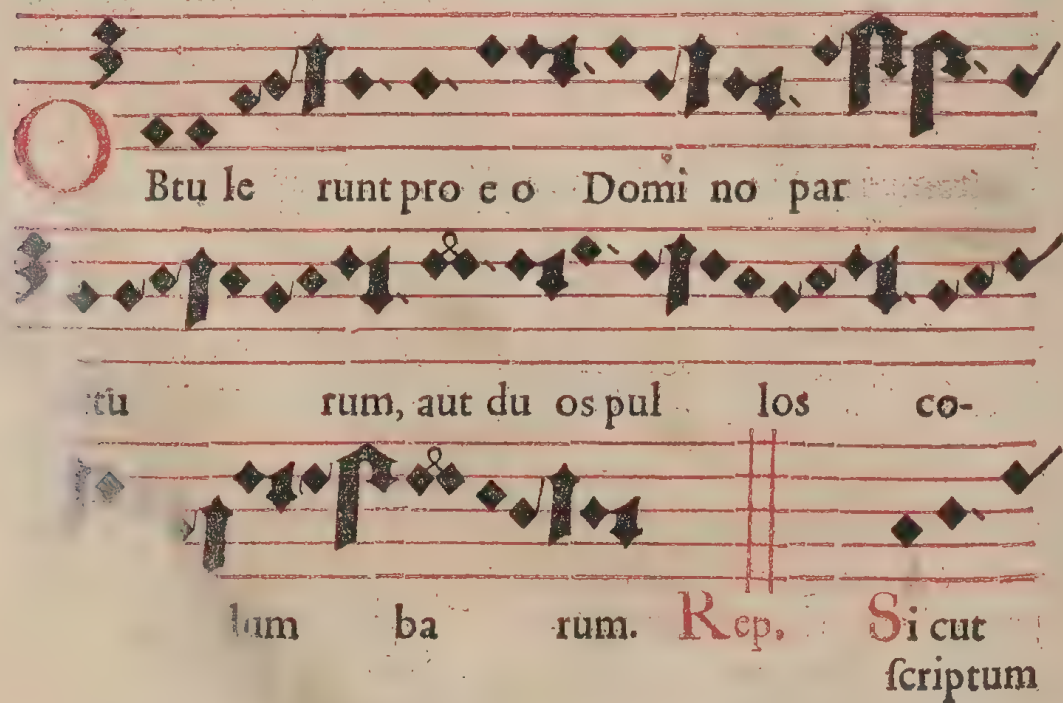 OBtu le runt pro e o Domi no par
tu rum, aut du os pul los co-
lum ba rum. Rep. Si cut
ſcriptum